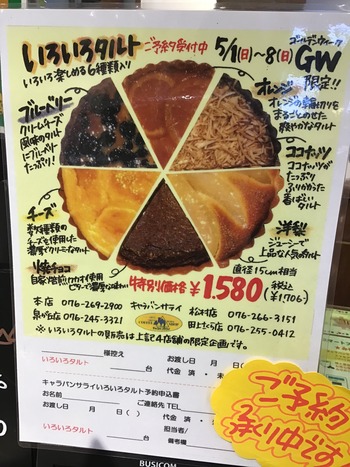 いろいろタルト ご予約受付中 5/1(日)~8(日)
ゴールデンウィーク
GW
限定!!
いろいろ楽しめる6種類入り
ブルーベリー
クリームチーズ
風味のタルト
にブルーベリー
たっぷり!
オレンジ
オレンジの輪切りを
まるごとのせた
爽やかなタルト
ココナッツ
ココナッツが
たっぷり
ふりかかった
香ばしい
タルト
チーズ
数種類の
チーズを使用した
濃厚クリーミなタルト
洋梨
ジューシーで
上品な人気タルト
焼チョコ
自家焙煎カカオ使用
ビターで濃厚な味わい
直径15cm相当
特別価格 ¥1,580 税込
(¥1,706)
本店 076-269-2900
泉が丘店 076-245-3321
キャラバンサライ
松村店 076-266-3151
田上さくら店 076-255-0412
※いろいろタルトの販売は上記4店舗の限定企画です。
様控え お渡し日 月 日( )
いろいろタルト 台 代金 済・未
キャラバンサライいろいろタルト予約申込書
お名前 ご連絡先TEL
お渡し日 月 日( ) 代金 済・
担当者/
いろいろタルト 台 備考欄
ご予約
承り中です
BUSICOM